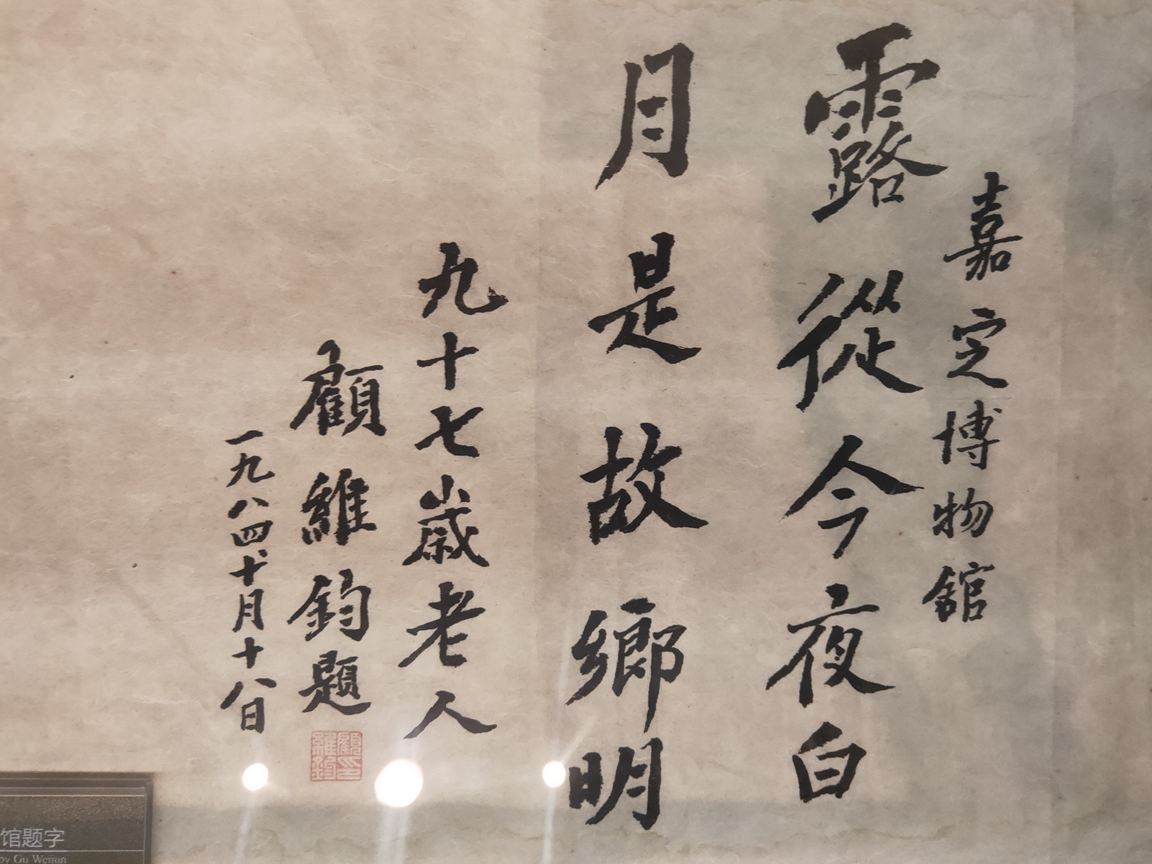 嘉定博物舘
露從今夜白
月是故鄉明
九十七歲老人
顧維鈞題
一九八四、十月十八日
顧維鈞印
馆题字
by Gu Weijun